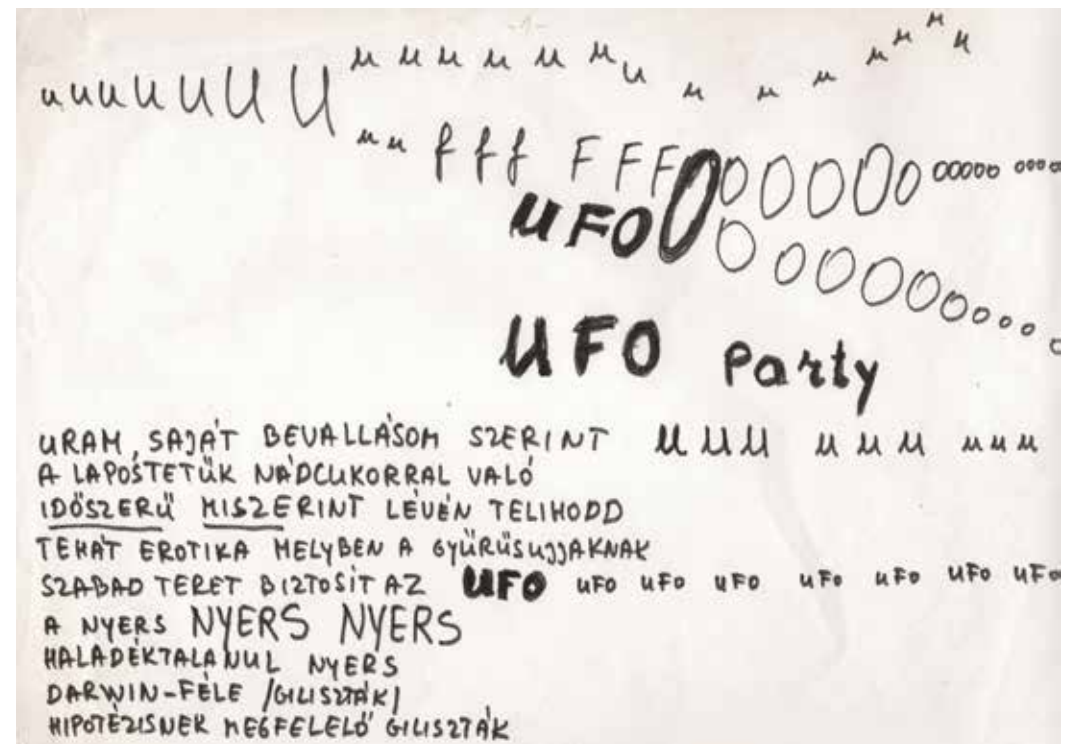 -1-
u u u u u U U U u u u u u u u u u u u u u u
u u f f f F F F O O O O O O o o o o o o o o o
UFO O O O O O O O o o o o o o
UFO Party
URAM, SAJÁT BEVALLÁSOM SZERINT u u u u u u u u u
A LAPOSTETŰK NÁDCUKORRAL VALÓ
IDŐSZERŰ MISZERINT LÉVÉN TELIHODD
TEHÁT EROTIKA MELYBEN A GYŰRŰSUJJAKNAK
SZABAD TERET BIZTOSIT AZ UFO UFO UFO UFO UFO UFO UFO UFO
A NYERS NYERS NYERS
HALADÉKTALANUL NYERS
DARWIN-FÉLE /GILISZTÁK/
HIPOTÉZISNEK MEGFELELŐ GILISZTÁK